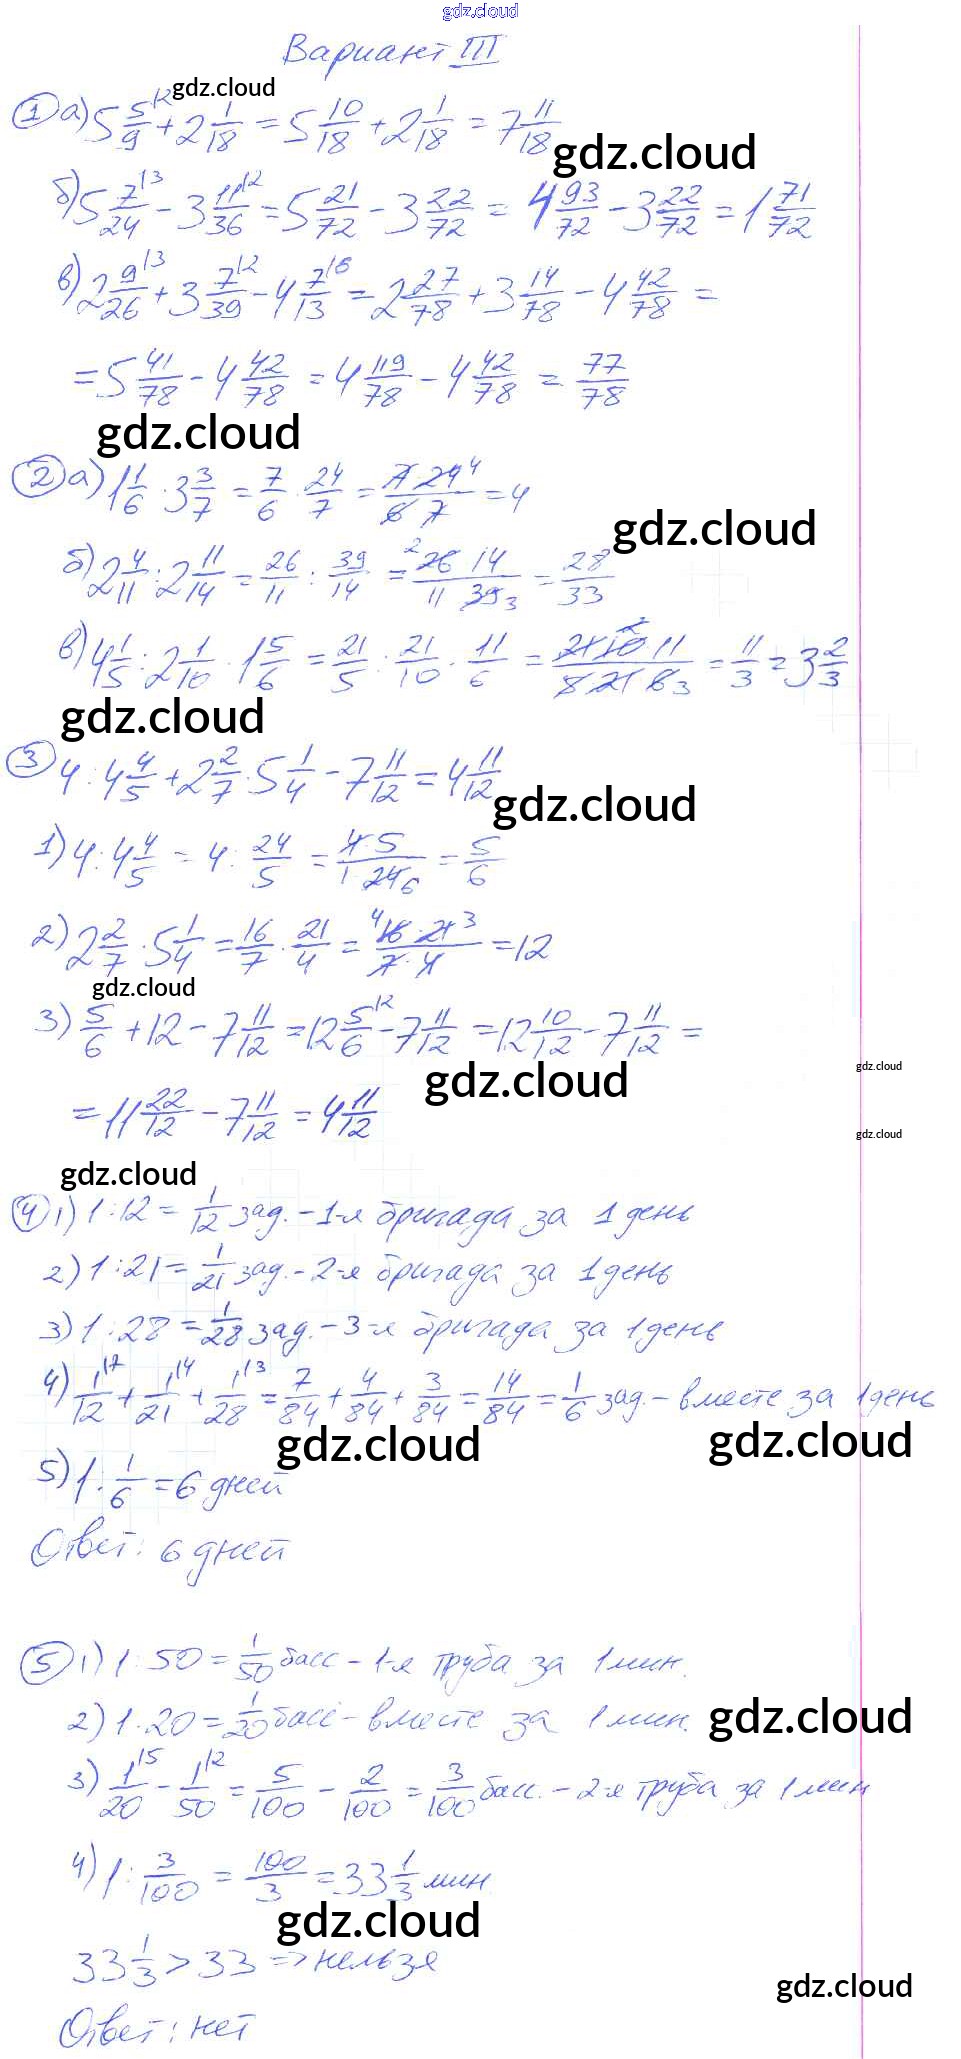 gdz.cloud
Вариант III
gdz.cloud
① а) 5 5/9 |2 + 2 1/18 = 5 10/18 + 2 1/18 = 7 11/18
gdz.cloud
б) 5 7/24 |3 - 3 11/36 |2 = 5 21/72 - 3 22/72 = 4 93/72 - 3 22/72 = 1 71/72
в) 2 9/26 |3 + 3 7/39 |2 - 4 7/13 |6 = 2 27/78 + 3 14/78 - 4 42/78 =
= 5 41/78 - 4 42/78 = 4 119/78 - 4 42/78 = 77/78
gdz.cloud
② а) 1 1/6 · 3 3/7 = 7/6 · 24/7 = 7·24 4/6 7 = 4
gdz.cloud
б) 2 4/11 : 2 11/14 = 26/11 : 39/14 = 2 26 14/11 39 3 = 28/33
в) 4 1/5 : 2 1/10 · 1 5/6 = 21/5 : 21/10 · 11/6 = 21 10 2 11/5 21 6 3 = 11/3 = 3 2/3
gdz.cloud
③ 4 : 4 4/5 + 2 2/7 · 5 1/4 - 7 11/12 = 4 11/12
gdz.cloud
1) 4 : 4 4/5 = 4 : 24/5 = 4·5/1·24 6 = 5/6
2) 2 2/7 · 5 1/4 = 16/7 · 21/4 = 4 16·21 3/7·4 = 12
gdz.cloud
3) 5/6 + 12 - 7 11/12 = 12 5/6 |2 - 7 11/12 = 12 10/12 - 7 11/12 =
gdz.cloud
gdz.cloud
= 11 22/12 - 7 11/12 = 4 11/12
gdz.cloud
gdz.cloud
④ 1) 1 : 12 = 1/12 зад. - 1-я бригада за 1 день
2) 1 : 21 = 1/21 зад. - 2-я бригада за 1 день
3) 1 : 28 = 1/28 зад. - 3-я бригада за 1 день
4) 1/12 |7 + 1/21 |4 + 1/28 |3 = 7/84 + 4/84 + 3/84 = 14/84 = 1/6 зад. - вместе за 1 день
gdz.cloud gdz.cloud
5) 1 : 1/6 = 6 дней
Ответ: 6 дней
⑤ 1) 1 : 50 = 1/50 басс - 1-я труба за 1 мин.
2) 1 : 20 = 1/20 басс - вместе за 1 мин.
gdz.cloud
3) 1/20 |5 - 1/50 |2 = 5/100 - 2/100 = 3/100 басс. - 2-я труба за 1 мин
4) 1 : 3/100 = 100/3 = 33 1/3 мин.
gdz.cloud
33 1/3 > 33 => нельзя
gdz.cloud
Ответ: нет